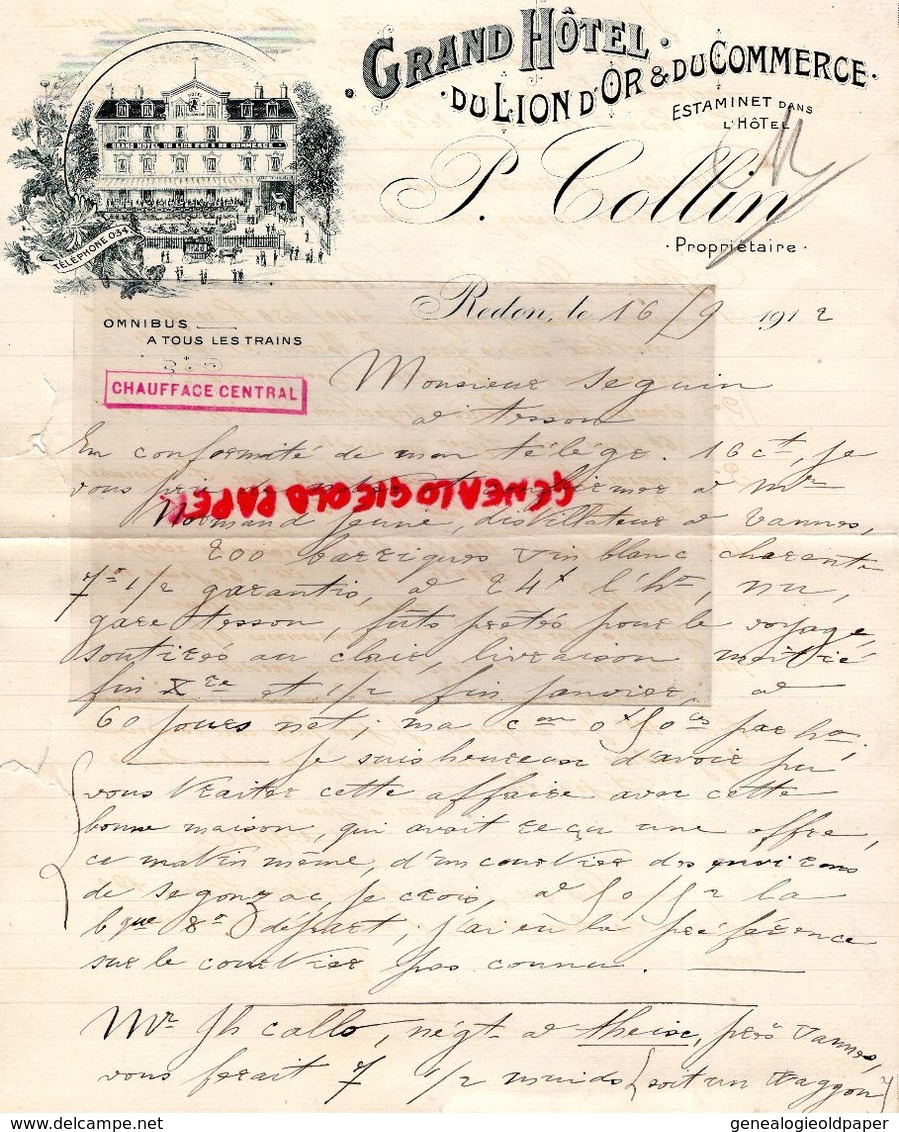 GRAND HÔTEL
DU LION D'OR & DU COMMERCE
ESTAMINET DANS
L'HÔTEL
P. Collin
Propriétaire
HOTEL
GRAND HOTEL DU LION D'OR & DU COMMERCE
TÉLÉPHONE 034
Redon, le 16/9 1912
OMNIBUS
A TOUS LES TRAINS
CHAUFFAGE CENTRAL
Monsieur Seguin
à Tesson
En conformité de mon télége. 16 ct, je
vous prie de à Mr
GENEALOGIEOLD PAPER
Normand jeune, distillateur à Vannes,
200 barriques vin blanc charente
7° 1/2 garantis, à 24f l'ho, nu,
gare Tesson, fûts prêtés pour le voyage,
soutirés au clair, livraison moitié
fin Xbre et 1/2 fin janvier, à
60 jours net; ma con 0f50 ces par ho,
Je suis heureux d'avoir pu
vous traiter cette affaire avec cette
bonne maison, qui avait reçu une offre,
ce matin même, d'un courtier des environs
de Segonzac, je crois, à 50/52 la
bque 8° départ, j'ai eu la préférence
sur le courtier pas connu.
Mr Jh Callo, négt à Theise, près Vannes,
vous ferait 7 1/2 muids (soit un waggon)
genealogieoldpaper